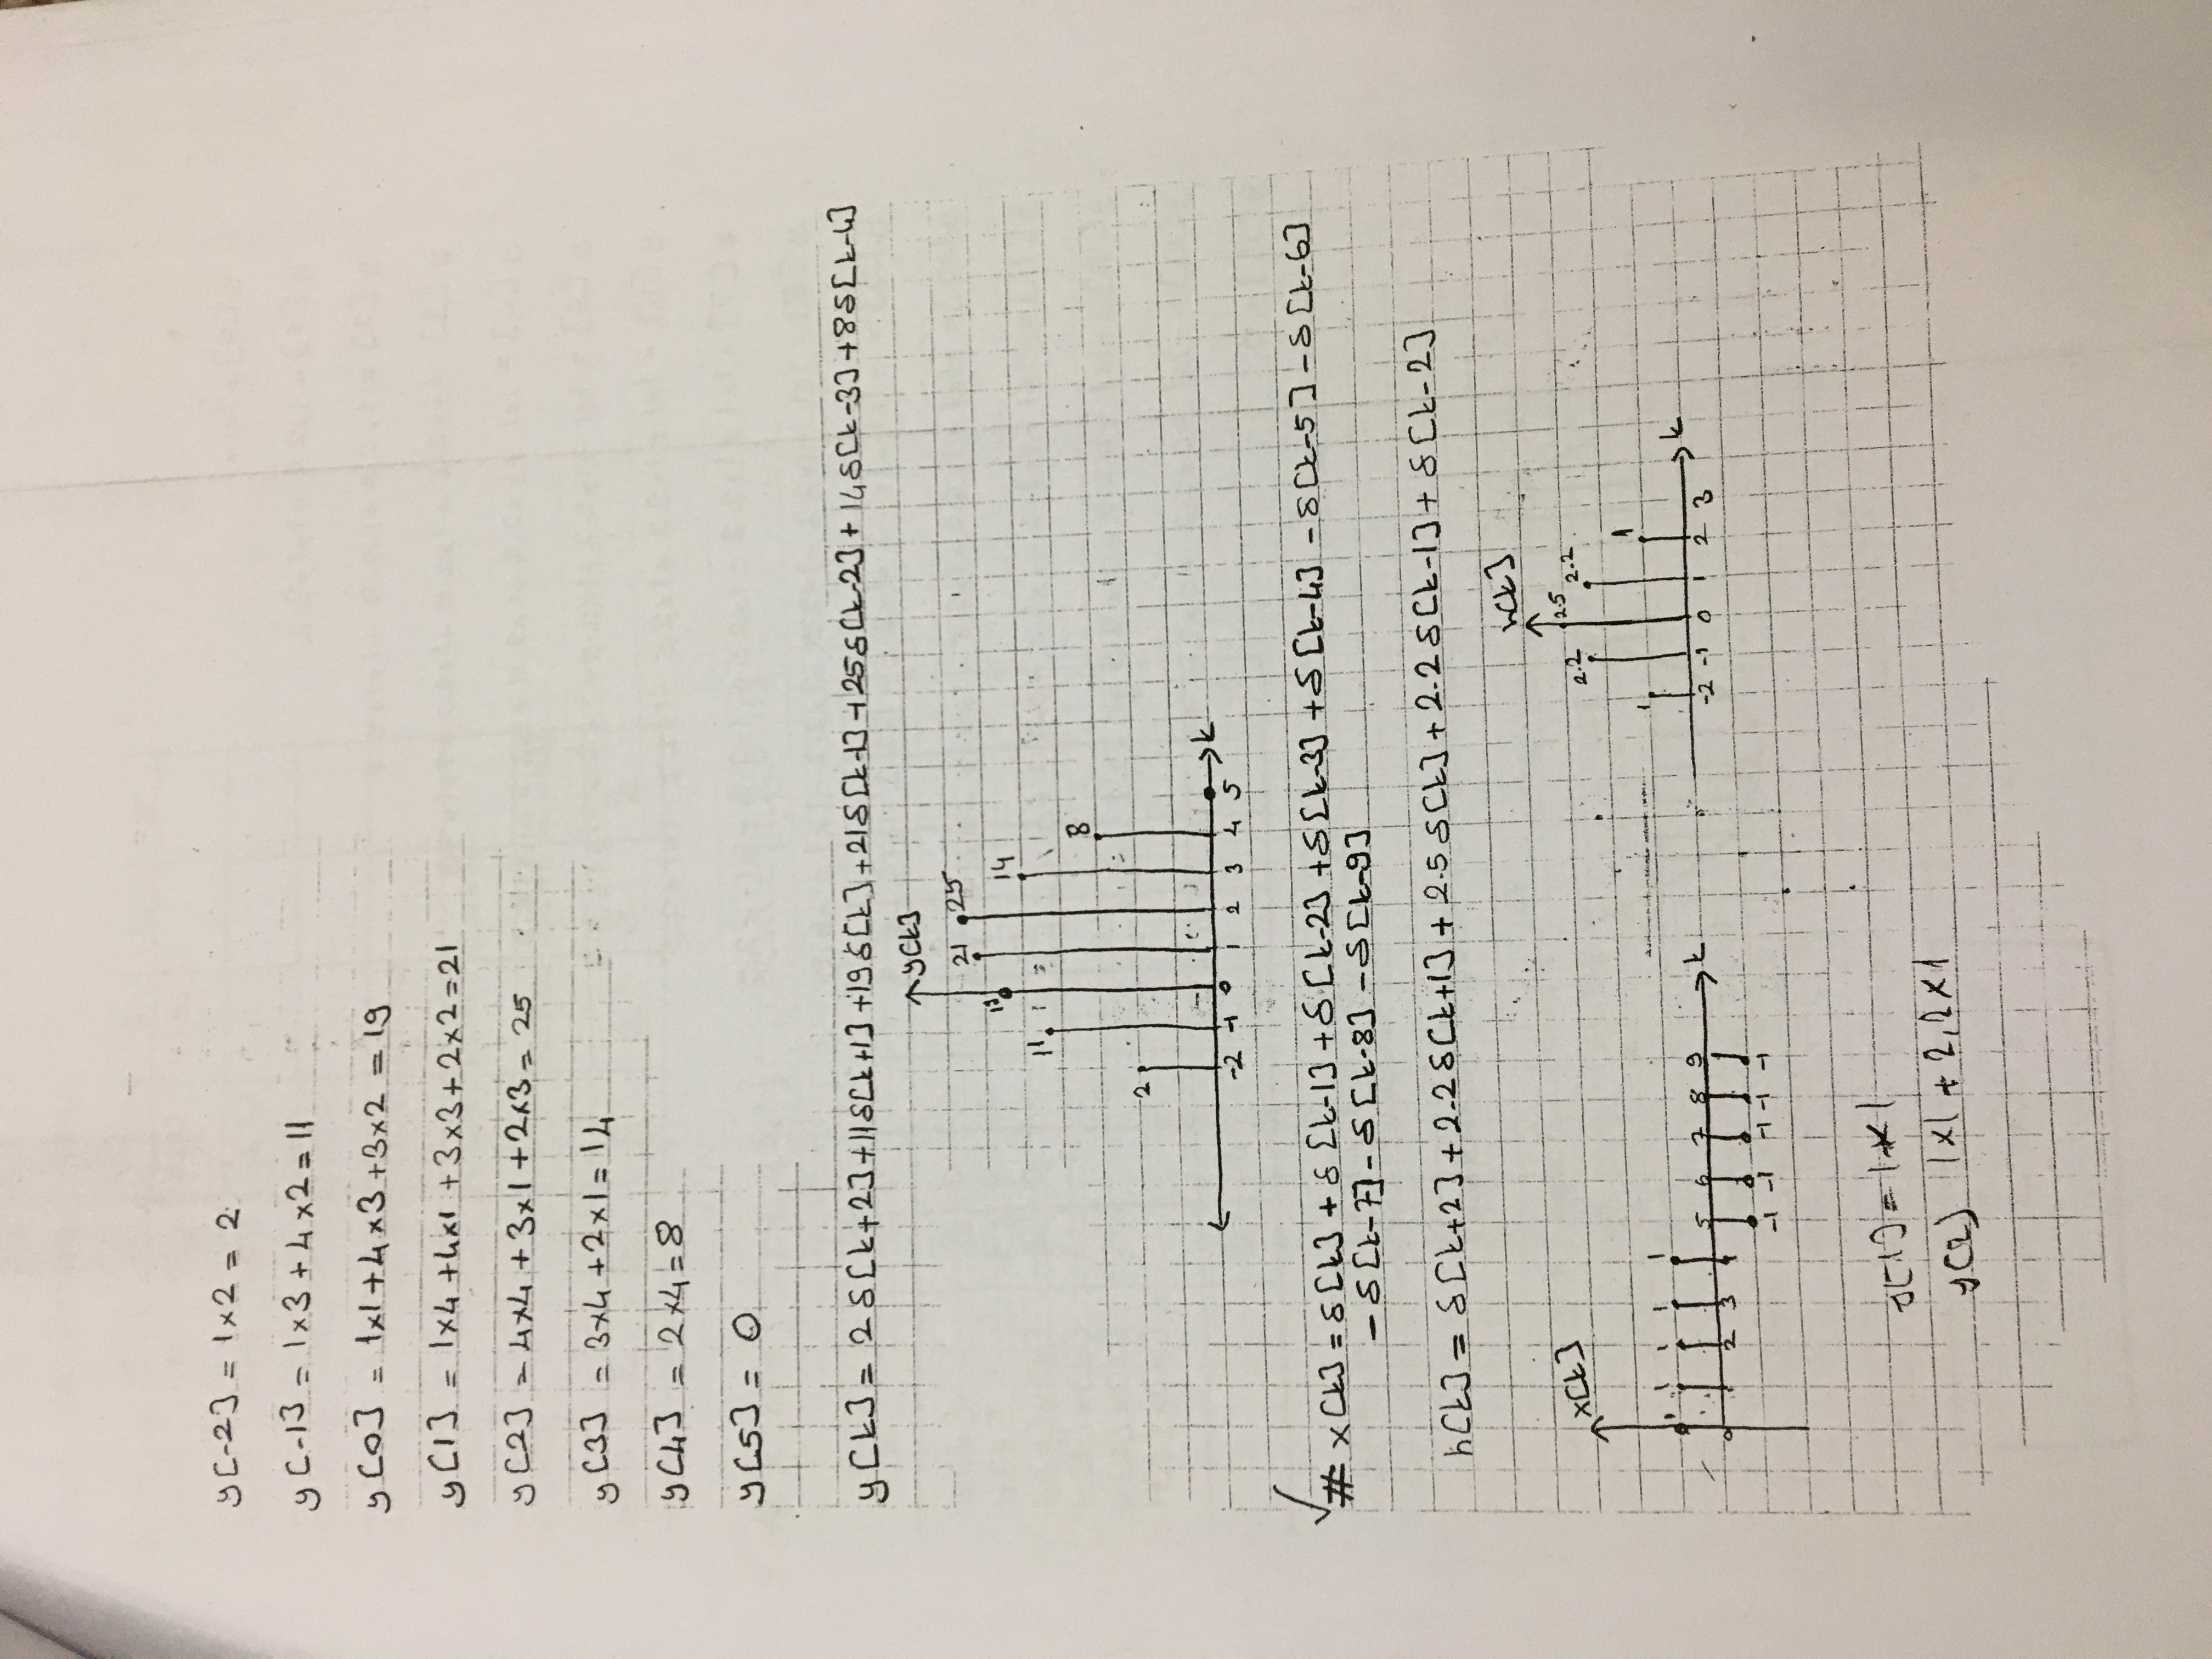 y[-2] = 1×2 = 2
y[-1] = 1×3 + 4×2 = 11
y[0] = 1×1 + 4×3 + 3×2 = 19
y[1] = 1×4 + 4×1 + 3×3 + 2×2 = 21
y[2] = 4×4 + 3×1 + 2×3 = 25
y[3] = 3×4 + 2×1 = 14
y[4] = 2×4 = 8
y[5] = 0
y[k] = 2δ[k+2] + 11δ[k+1] + 19δ[k] + 21δ[k-1] + 25δ[k-2] + 14δ[k-3] + 8δ[k-4]
y[k]
2 11 19 21 25 14 8
-2 -1 0 1 2 3 4 5 k
# x[k] = δ[k] + δ[k-1] + δ[k-2] + δ[k-3] + δ[k-4] - δ[k-5] - δ[k-6]
- δ[k-7] - δ[k-8] - δ[k-9]
h[k] = δ[k+2] + 2.2δ[k+1] + 2.5δ[k] + 2.2δ[k-1] + δ[k-2]
x[k]
1 1 1 1 1
0 1 2 3 4 5 6 7 8 9 k
-1 -1 -1 -1 -1
h[k]
1 2.2 2.5 2.2 1
-2 -1 0 1 2 3 k
y[-1] = 1×1
y(2) 1×1 + 2,2×1